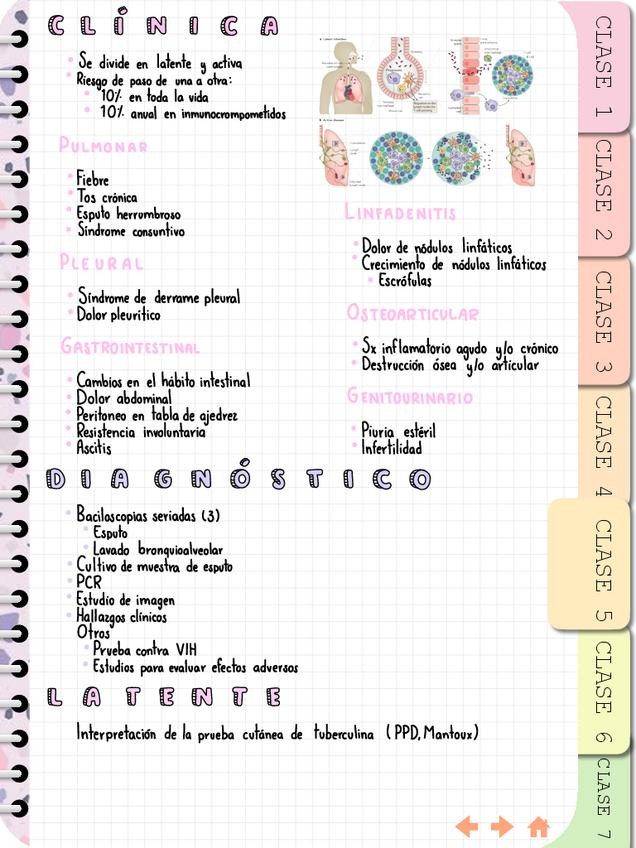 CLÍNICA
Se divide en latente y activa
Riesgo de paso de una a otra:
10% en toda la vida
10% anual en inmunocromprometidos
PULMONAR
Fiebre
Tos crónica
Esputo herrumbroso
Síndrome consuntivo
PLEURAL
Síndrome de derrame pleural
Dolor pleurítico
GASTROINTESTINAL
Cambios en el hábito intestinal
Dolor abdominal
Peritoneo en tabla de ajedrez
Resistencia involuntaria
Ascitis
LINFADENITIS
Dolor de nódulos linfáticos
Crecimiento de nódulos linfáticos
Escrófulas
OSTEOARTICULAR
Sx inflamatorio agudo y/o crónico
Destrucción ósea y/o articular
GENITOURINARIO
Piuria estéril
Infertilidad
DIAGNÓSTICO
Baciloscopias seriadas (3)
Esputo
Lavado bronquioalveolar
Cultivo de muestra de esputo
PCR
Estudio de imagen
Hallazgos clínicos
Otros
Prueba contra VIH
Estudios para evaluar efectos adversos
LATENTE
Interpretación de la prueba cutánea de tuberculina (PPD, Mantoux)
CLASE 1
CLASE 2
CLASE 3
CLASE 4
CLASE 5
CLASE 6
CLASE 7